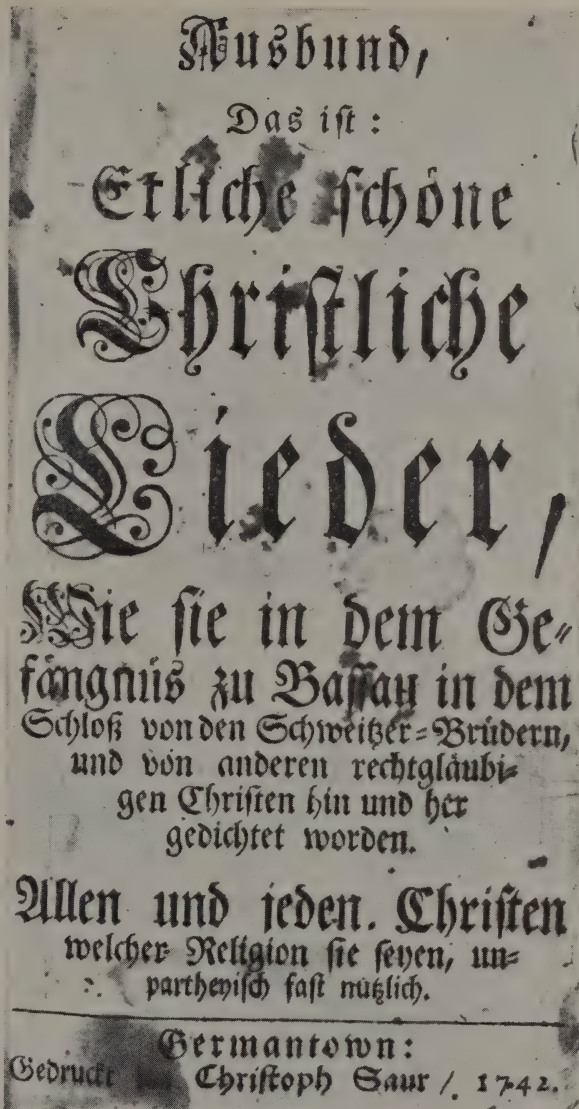 Ausbund,
Das ist:
Etliche schöne
Christliche
Lieder,
Wie sie in dem Ge-
fängnüs zu Bassau in dem
Schloß von den Schweitzer-Brüdern,
und von anderen rechtgläubi-
gen Christen hin und her
gedichtet worden.
Allen und jeden. Christen
welcher Religion sie seyen, un-
partheyisch fast nützlich.
Germantown:
Gedruckt Christoph Saur / 1742.